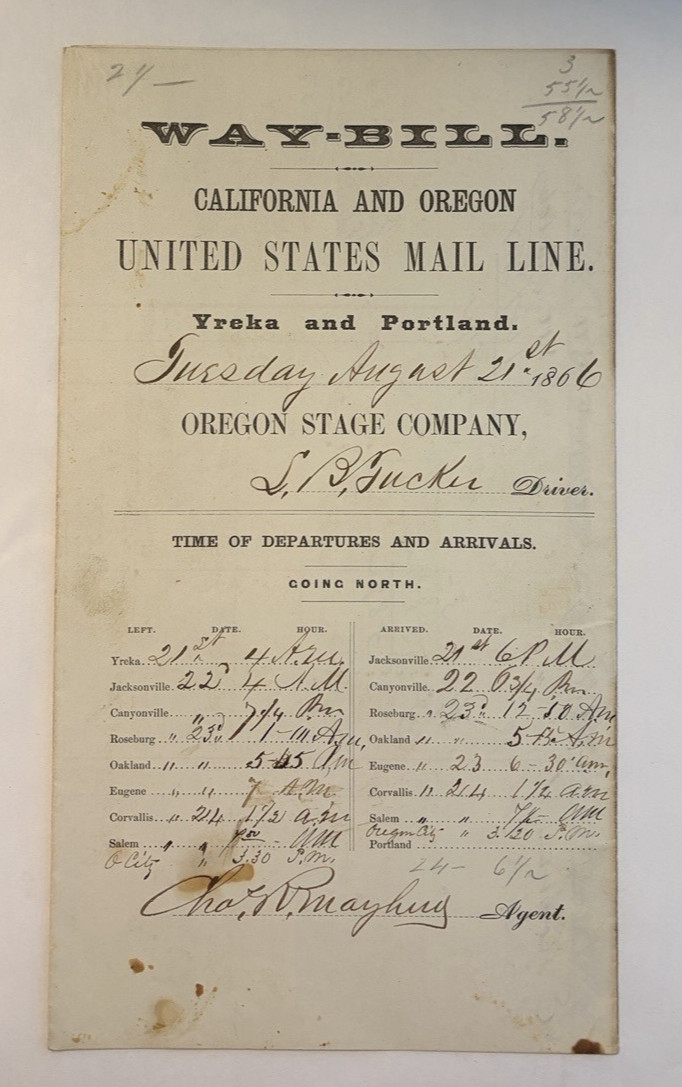 21/-
3
55 1/2
58 1/2
WAY-BILL.
CALIFORNIA AND OREGON
UNITED STATES MAIL LINE.
Yreka and Portland.
Tuesday August 21st 1866
OREGON STAGE COMPANY,
L. B. Tucker Driver.
TIME OF DEPARTURES AND ARRIVALS.
GOING NORTH.
LEFT. DATE. HOUR. ARRIVED. DATE. HOUR.
Yreka 21st 4 A.M. Jacksonville 21st 6 P M
Jacksonville 22 4 A.M. Canyonville 22 6 3/4 Pm
Canyonville " 7 1/4 Pm Roseburg " 23d 12-50 Am
Roseburg " 23d 1- Am, Oakland " " 5 A.m
Oakland " " 5 Am Eugene " 23 6-30 m,
Eugene " " 7 .M. Corvallis " 24 1 1/4 a.m
Corvallis " 24 1 1/2 a.m Salem " " 7 AM
Salem " " AM Oregon City " 3.20 P.M.
O City " 3.30 P.M. Portland
24- 6 1/2
Chas. R. Mayhew Agent.